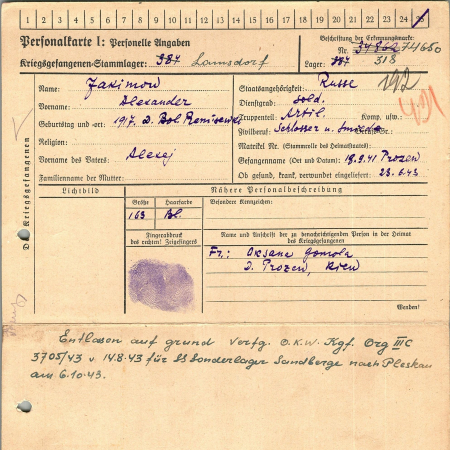 1 2 3 4 5 6 7 8 9 10 11 12 13 14 15 16 17 18 19 20 21 22 23 24 25
Personalkarte I: Personelle Angaben
Kriegsgefangenen-Stammlager: 387 Lamsdorf
Beschriftung der Erkennungsmarke:
Nr. 34862 74660
Lager: 387 318
Des Kriegsgefangenen
Name: Jakimow
Vorname: Alexander
Geburtstag und -ort: 1917. D. Bol
Religion:
Vorname des Vaters: Alexej
Familienname der Mutter:
Staatsangehörigkeit: Russe
192
Dienstgrad: Sold.
Truppenteil: Artil. Komp. usw.:
Zivilberuf: Schlosser u. Berufs-Gr.:
Matrikel Nr. (Stammrolle des Heimatstaates):
Gefangennahme (Ort und Datum): 19.9.41 Prozen
Ob gesund, krank, verwundet eingeliefert: 23.6.43
Lichtbild
Nähere Personalbeschreibung
Größe
Haarfarbe
Besondere Kennzeichen:
163
Bl.
Fingerabdruck
des rechten! Zeigefingers
Name und Anschrift der zu benachrichtigenden Person in der Heimat
des Kriegsgefangenen
Fr.: Oksana
D. Prozen, Kiew
Wenden!
Entlassen auf grund Verfg. O.K.W. Kgf. Org III C
3705/43 v. 14.8.43 für SS Sonderlager Sandberge nach Pleskau
am 6.10.43.